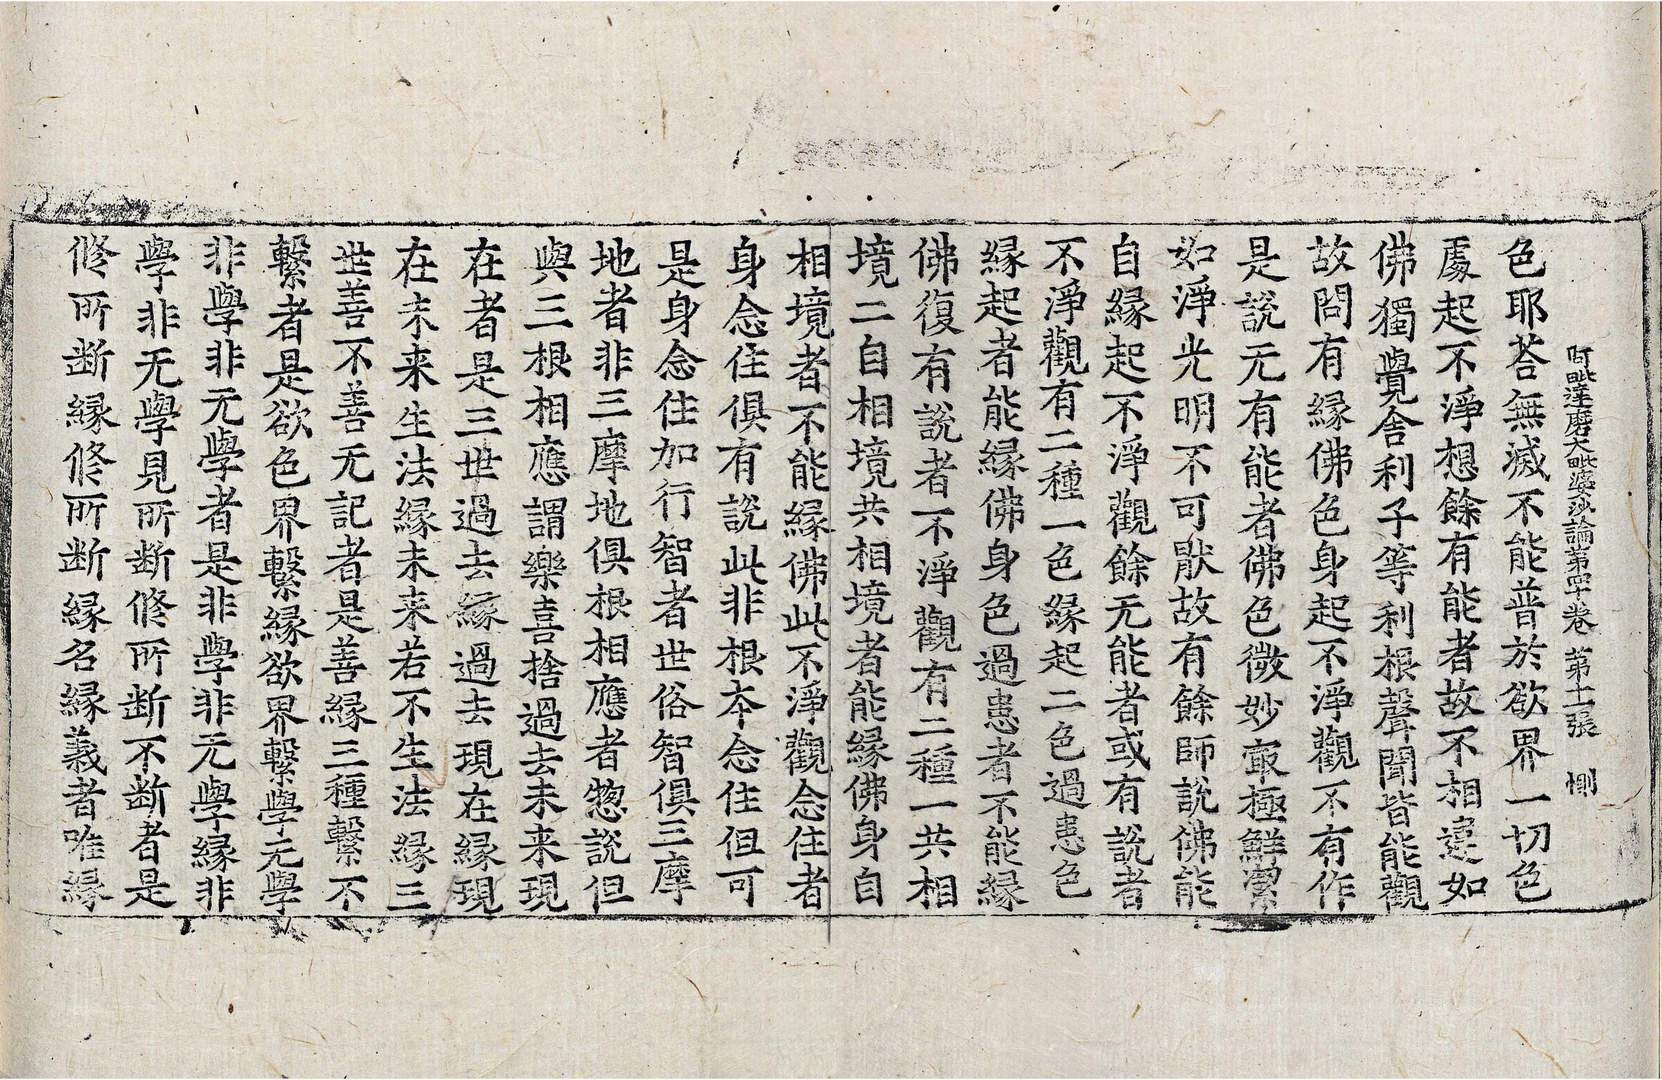 阿毗達磨大毗婆沙論第四十卷 第十一張 惻
色耶荅無滅不能普於欲界一切色
處起不淨想餘有能者故不相違如
佛獨覺舍利子等利根聲聞皆能觀
故問有緣佛色身起不淨觀不有作
是說无有能者佛色微妙㝡極鮮潔
如淨光明不可猒故有餘師說佛能
自緣起不淨觀餘无能者或有說者
不淨觀有二種一色緣起二色過患色
緣起者能緣佛身色過患者不能緣
佛復有說者不淨觀有二種一共相
境二自相境共相境者能緣佛身自
相境者不能緣佛此不淨觀念住者
身念住俱有說此非根本念住但可
是身念住加行智者世俗智俱三摩
地者非三摩地俱根相應者惣說但
與三根相應謂樂喜捨過去未来現
在者是三世過去緣過去現在緣現
在未来生法緣未来若不生法緣三
世善不善无記者是善緣三種繫不
繫者是欲色界繫緣欲界繫學无學
非學非无學者是非學非无學緣非
學非无學見所断修所断不断者是
修所断緣修所断緣名緣義者唯緣